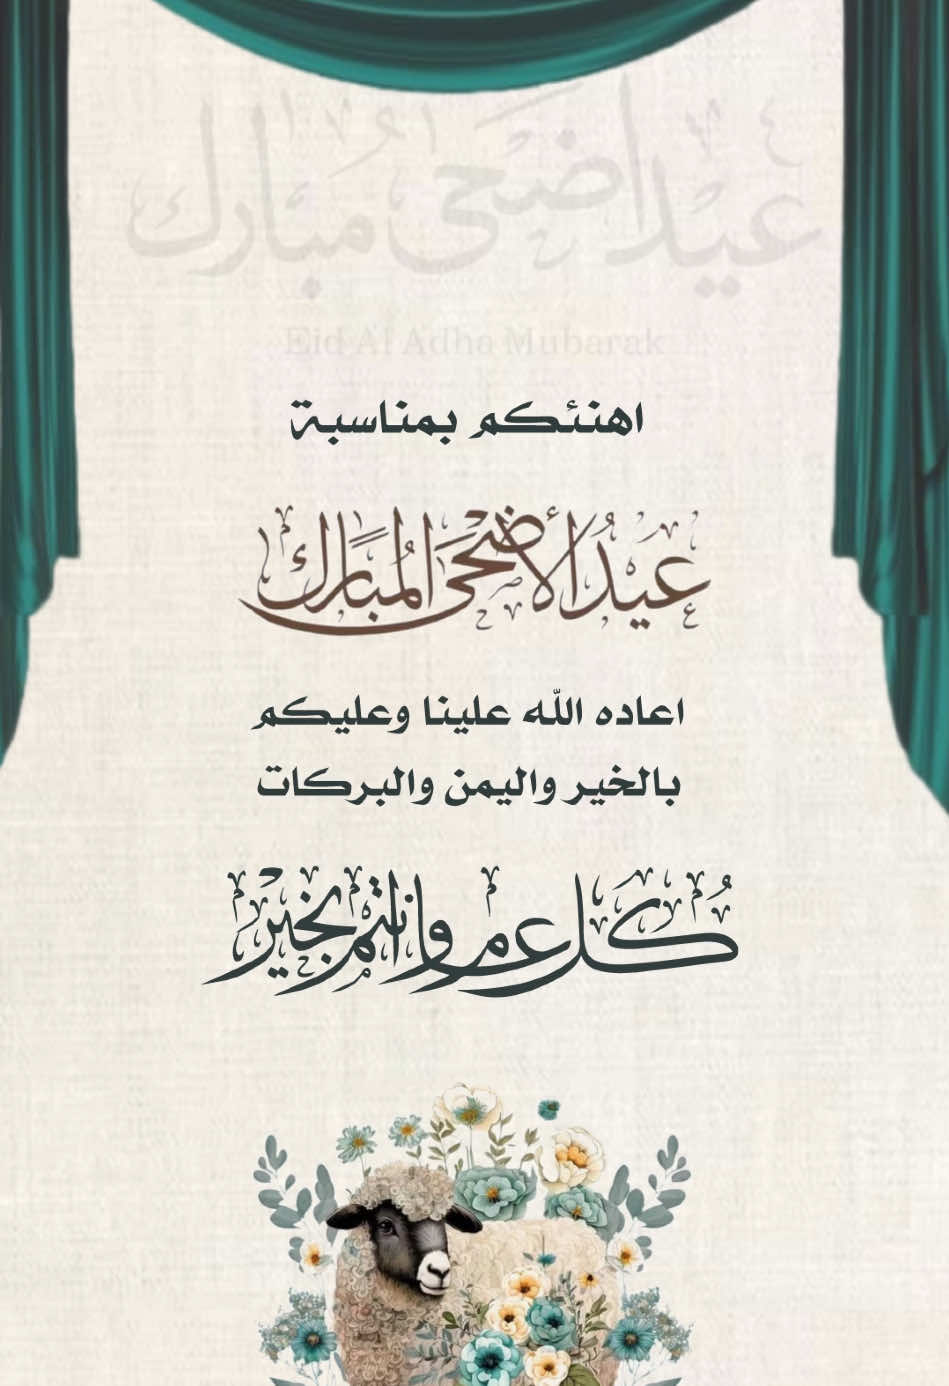 عيد اضحى مبارك
Eid Al Adha Mubarak
اهنئكم بمناسبة
عيد الأضحى المبارك
اعاده الله علينا وعليكم
بالخير واليمن والبركات
كل عام وانتم بخير